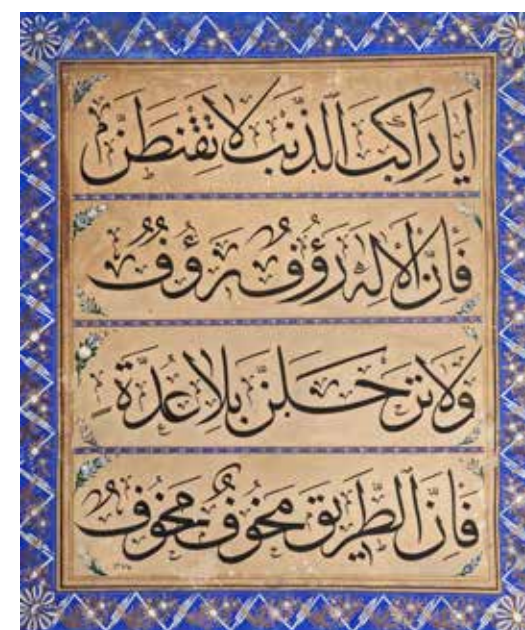 اَيَا رَاكِبَ الذَّنْبِ لَا تَقْنَطَنَّ
فَاِنَّ الْاِلٰهَ رَؤُفٌ رَؤُفٌ
وَلَا تَرْحَلَنَّ بِلَا عُدَّةٍ
فَاِنَّ الطَّرِيقَ مَخُوفٌ مَخُوفٌ